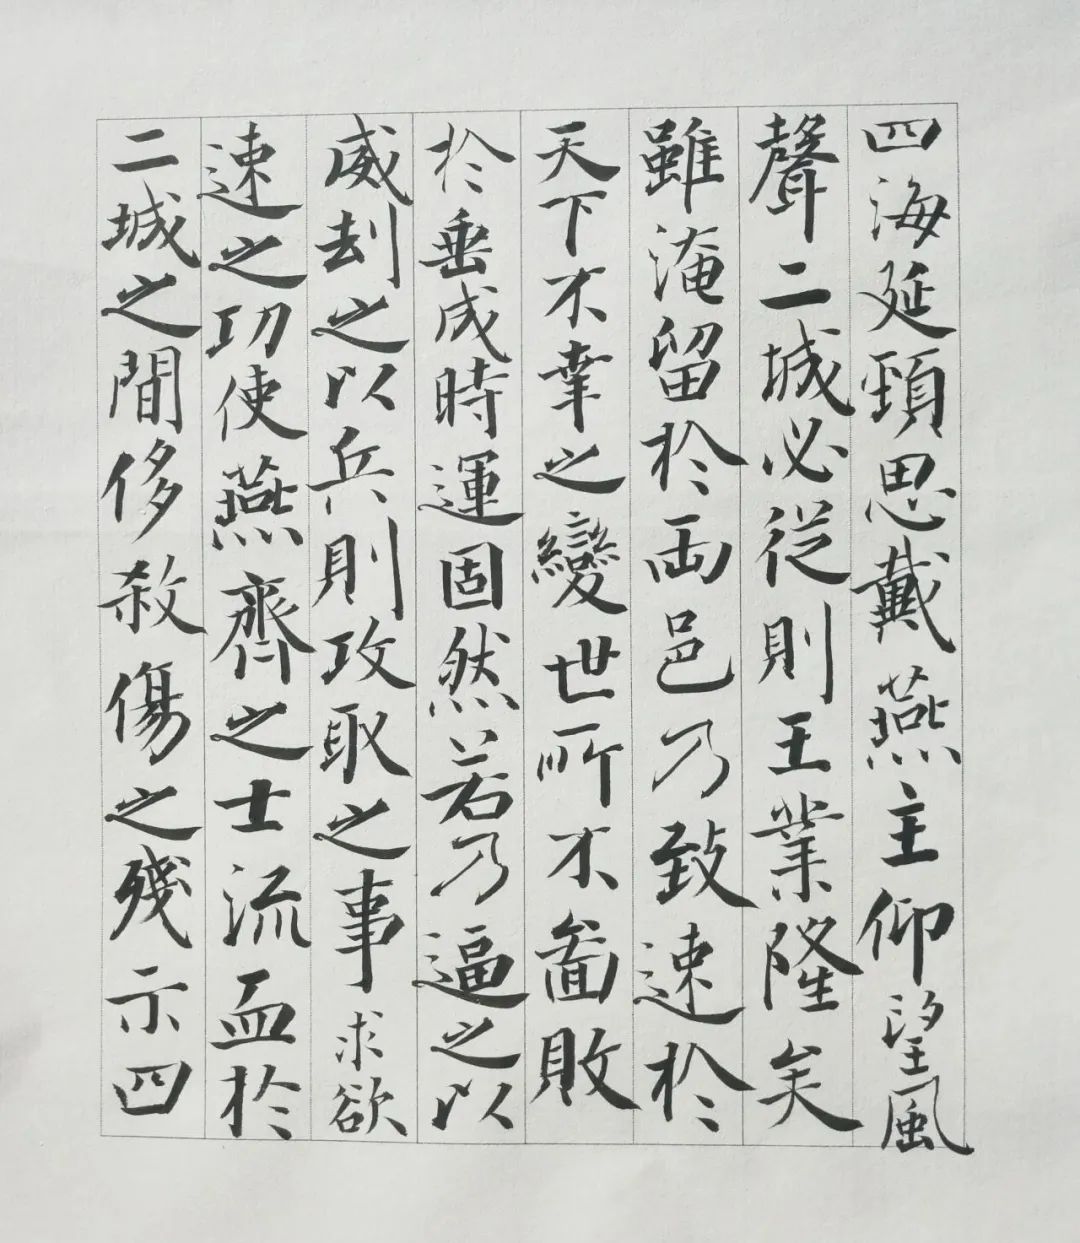 四海延頸思戴燕主仰望風
聲二城必從則王業隆矣
雖淹留於兩邑乃致速於
天下不幸之變世所不啚敗
於垂成時運固然若乃逼之以
威劫之以兵則攻取之事求欲
速之功使燕齊之士流血於
二城之間侈殺傷之殘示四